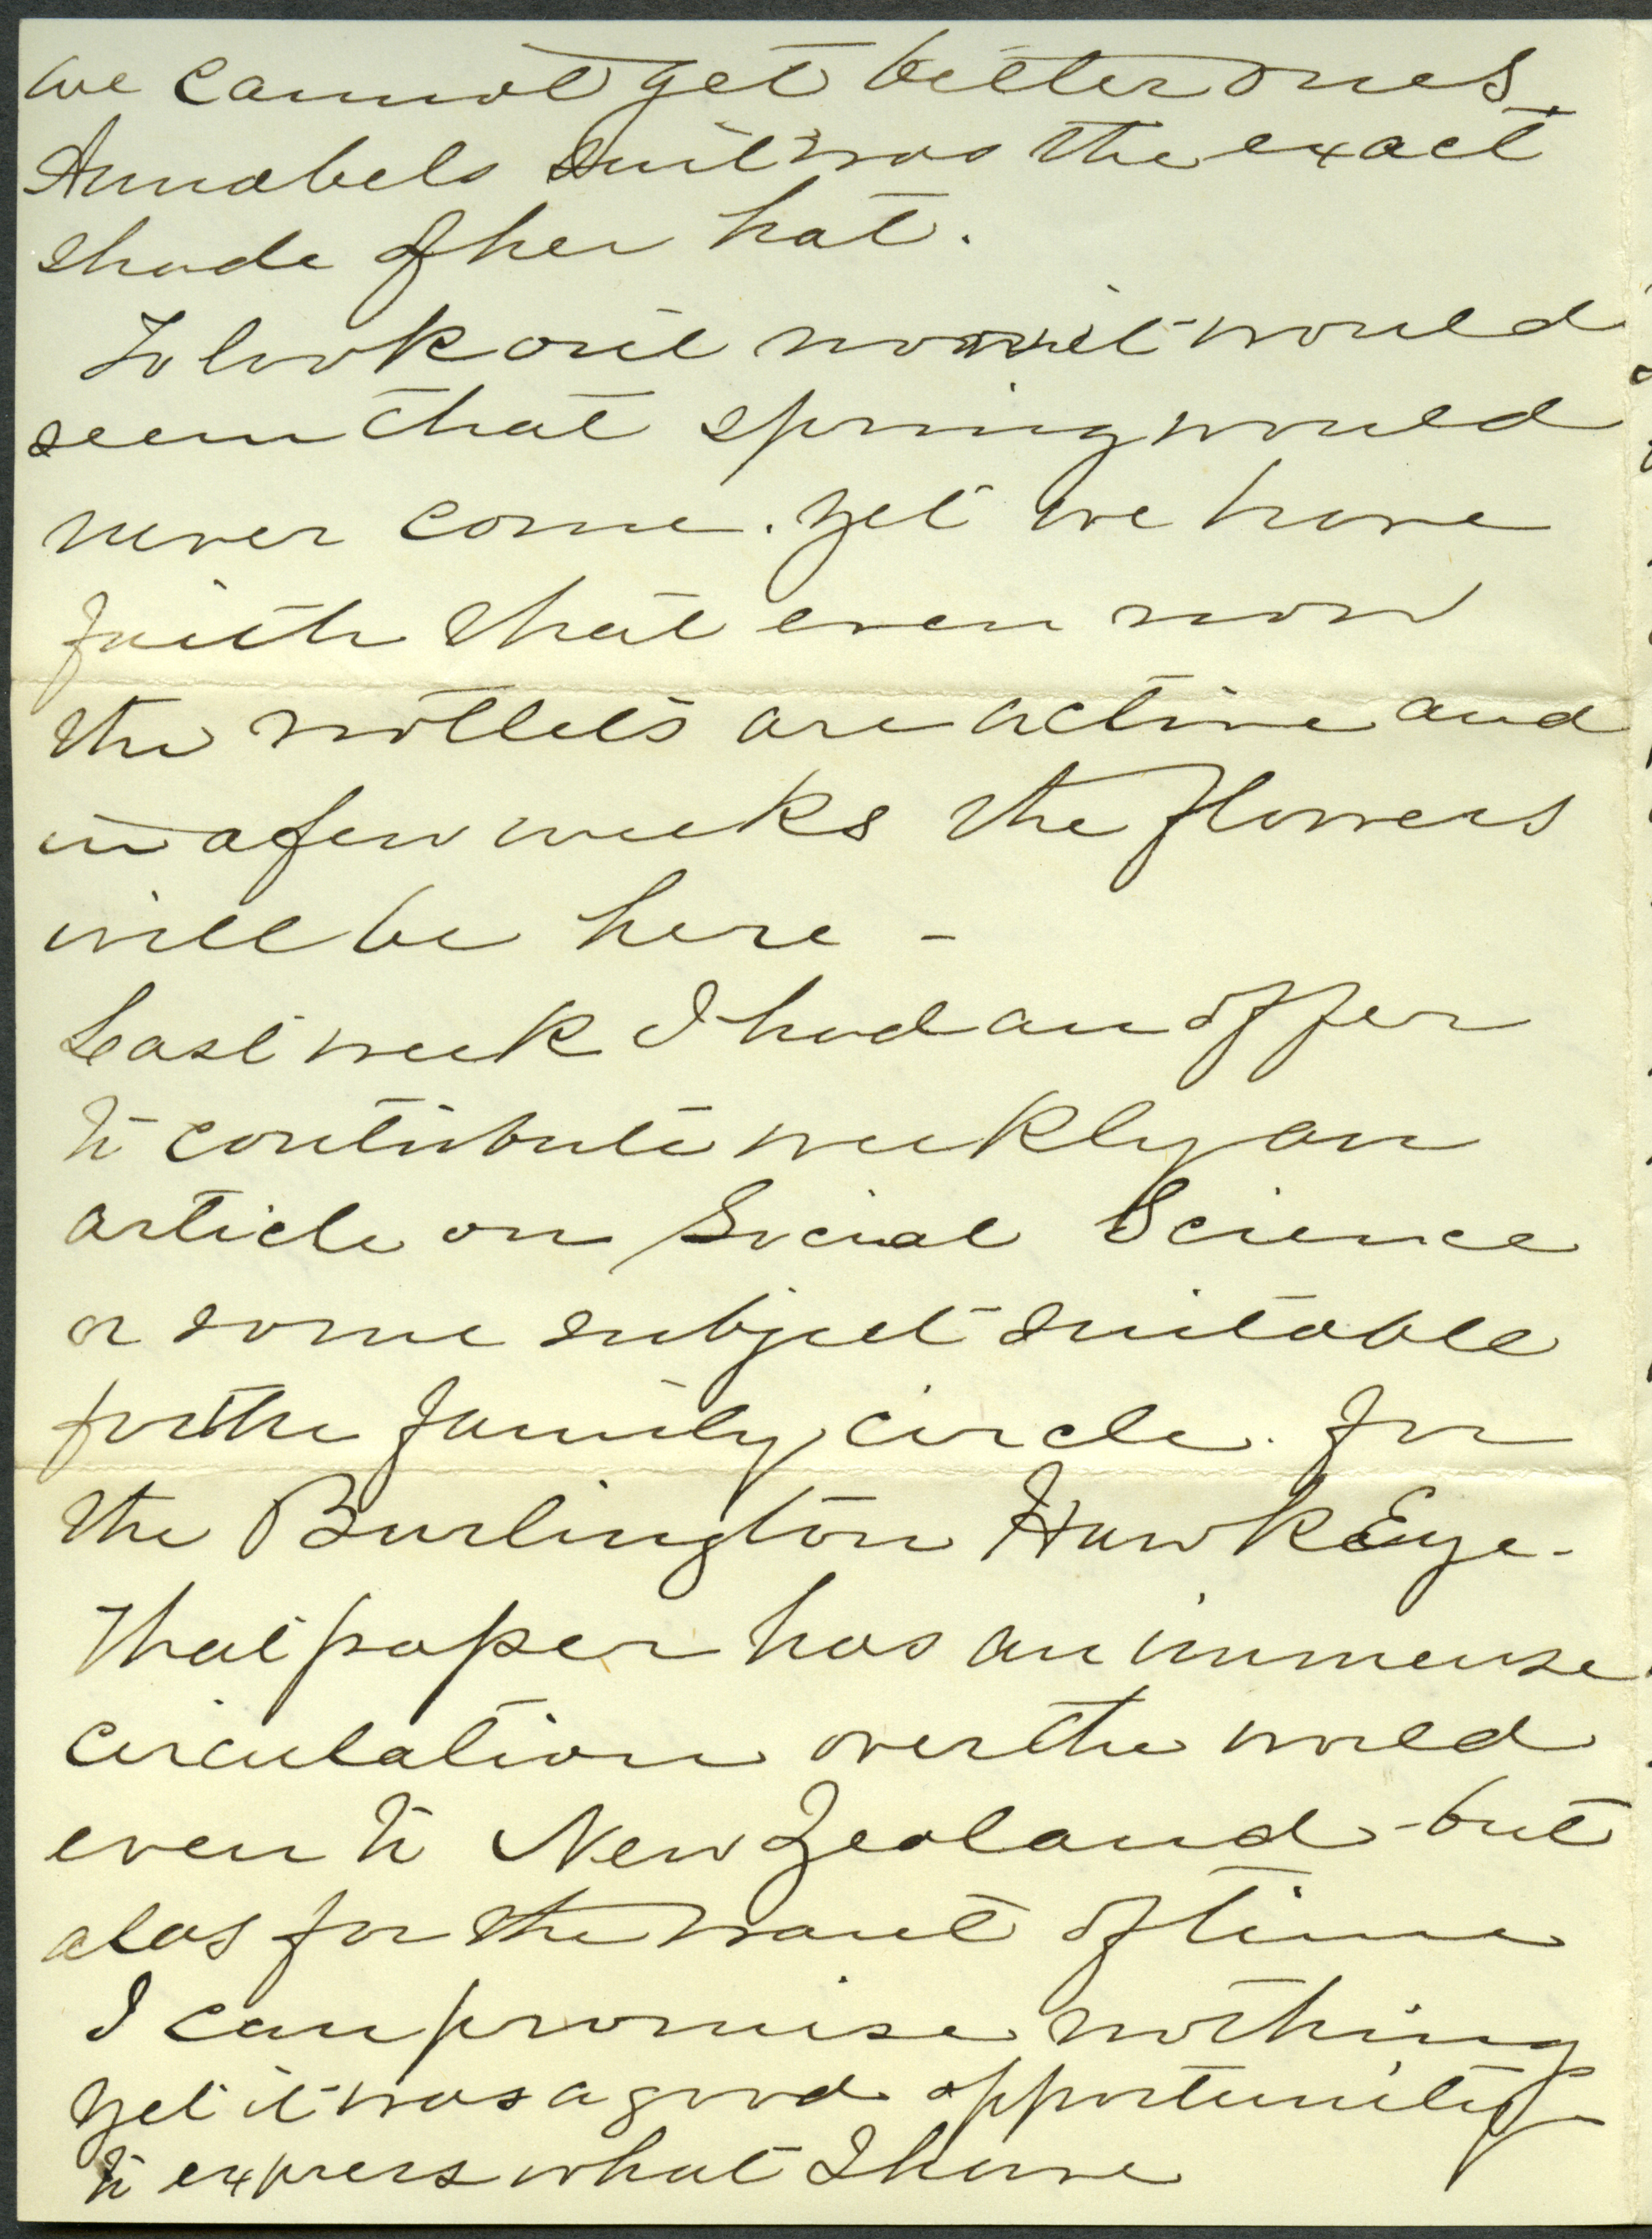 we cannot get better ones.
Annabels suit was the exact
shade of her hat.
To look out now it would
seem that spring would
never come. Yet we have
faith that even now
the rootlets are active and
in a few weeks the flowers
will be here -
Last week I had an offer
to contribute weekly an
article on Social Science
or some subject suitable
for the family circle. for
the Burlington Hawk Eye.
That paper has an immense
circulation over the world
even to New Zealand - but
alas for the want of time
I can promise nothing
Yet it was a good opportunity
to express what I have